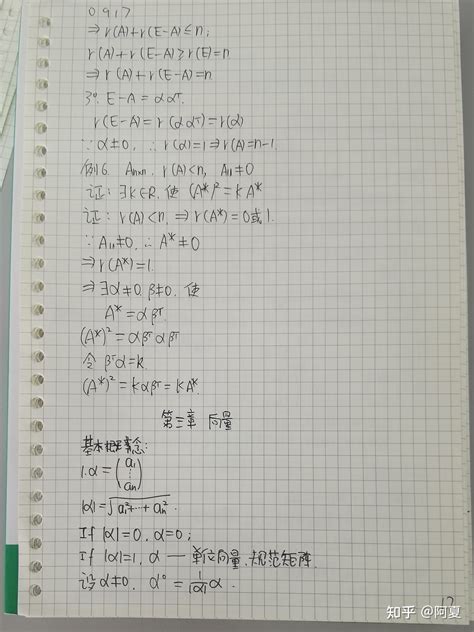 ⇒r(A)+r(E-A)≤n;
r(A)+r(E-A)≥r(E)=n
⇒r(A)+r(E-A)=n
3°. E-A=ααᵀ.
r(E-A)=r(ααᵀ)=r(α)
∵α≠0, ∴r(α)=1⇒r(A)=n-1.
例6. Aₙₓₙ. r(A)<n, A₁₁≠0
证:∃k∈R, 使 (A*)²=kA*
证:r(A)<n, ⇒r(A*)=0或1.
∵A₁₁≠0, ∴A*≠0
⇒r(A*)=1.
⇒∃α≠0, β≠0, 使
A*=αβᵀ
(A*)²=αβᵀαβᵀ
令 βᵀα=k.
(A*)²=kαβᵀ=kA*.
第三章 向量
基本概念:
1.α=(a₁ ⋮ aₙ)
|α|=√(a₁²+⋯+aₙ²).
If |α|=0, α=0;
If |α|=1, α — 单位向量,规范矩阵.
设 α≠0, α°=1/|α| α.
知乎 @阿夏